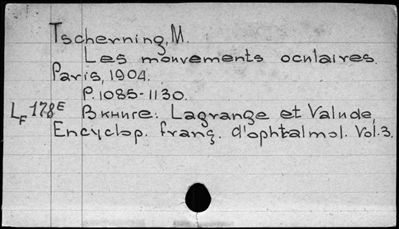 Tscherning, M.
Les mouvements oculaires.
Paris, 1904.
P. 1085-1130.
LF 178E Вкниге: Lagrange et Valude,
Encyclop. franç. d'ophtalmol. Vol. 3.